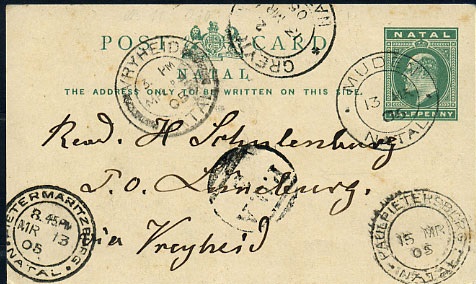 POST CARD
NATAL
THE ADDRESS ONLY TO BE WRITTEN ON THIS SIDE.
NATAL
HALFPENNY
VRYHEID
05
GREYTOWN
MR
05
MUDEN
13
NATAL
Revd. H Schulenburg
P.O. Lüneburg.
via Vryheid
PIETERMARITZBURG
8.45PM
MR 13
05
NATAL
PAULPIETERSBURG
15 MR
05
NATAL